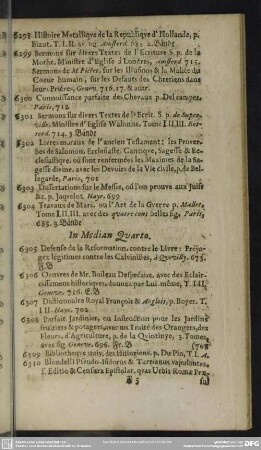 6298 Histoire Metallique de la Republique d'Hollande, p.
Bizot. T. I. II. Amsterd. 2. Bände
6299 Sermons sur divers Textes de l'Ecriture S. p. de la
Mothe, Ministre d'Eglise à Londres, Amsterd 715.
Sermons de M Pictet, sur les Illusions & la Malice du
Coeur humain, sur les Defauts des Chretiens dans
leur Prieres, Genev. 716. 17. & autr.
6300 Connoissance parfaite des Chevaux p. Delcampe,
Paris, 712
6301 Sermons sur divers Textes de l'Ecrit. S. p. de Superville,
Ministre d'Eglise Wallonne. Tome I. II. III. Rotterd.
714. 3 Bände
6302 Livres moraux de l'ancien Testament: les Proverbes
de Salomon, Ecclesiaste, Cantique, Sagesse & Ecclesiastique,
où sont renfermées les Maximes de la Sagesse
divine, avec les Devoirs de la Vie civile, p. de Bellegarde,
Paris, 701
6303 Dissertations sur le Messie, où l'on prouve aux Juifs
&c. p. Jaquelot, Haye, 699
6304 Travaux de Mars, ou l'Art de la Guerre p. Mallet,
Tome I. II. III. avec des quatre cens belles fig, Paris,
685. 3 Bände
In Median Quarto.
6305 Defense de la Reformation, contre le Livre: Préjugez
légitimes contre les Calvinistes, à Quevilly, 675.
F. B
6306 Oeuvres de Mr. Boileau Despréaux, avec des Eclaircissemens
historiques, donnez par Lui même, T. I. II,
Geneve, 716. E. B
6307 Dictionaire Royal François & Anglois, p. Boyer. T.
I II. Haye, 702
6308 Parfait Jardinier, ou Instruction pour les Jardins
fruitiers & potagers, avec un Traité des Orangers, des
Fleurs, d'Agriculture, p. de la Quintinye, 3. Tomes,
avec fig. Geneve, 696. Fr. B (708
6309 Bibliotheque univ. des Historiens, p. Du Pin, T. I. A.
6310 Blondelli Pseudo-Isidorus & Turrianus vapulantes,
s. Editio & Censura Epistolar. qvas Urbis Romæ Præ-
B 5 sul